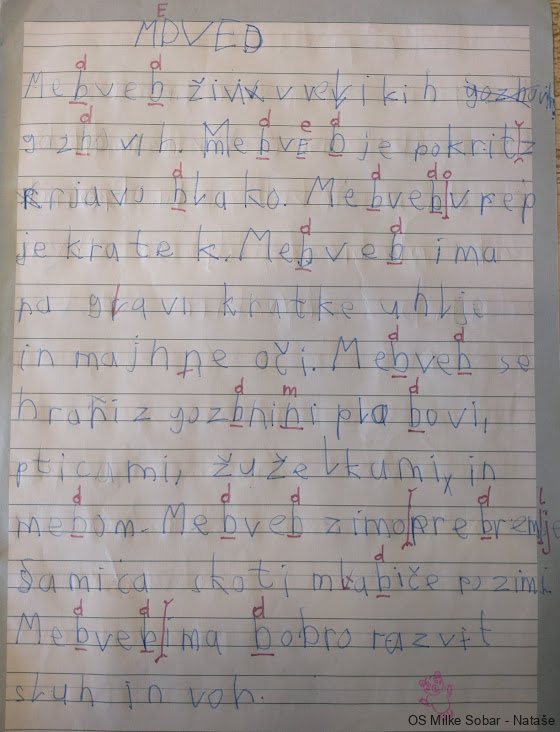 MDVED
E
Mebveb živi v velikih
gozbovih. MebvEb je pokrit z
rjavo blako. Mebveb v rep
je kratek. Mebveb ima
na glavi kratke uhlje
in majhne oči. Mebveb se
hrani z gozbnini plabovi,
pticami, žuželkami, in
mebom. Mebveb zimo pre bremje
Samica skoti mlabiče pozimi
Mebveb ima bobro razvit
sluh in voh.
OS Milke Sobar - Nataše